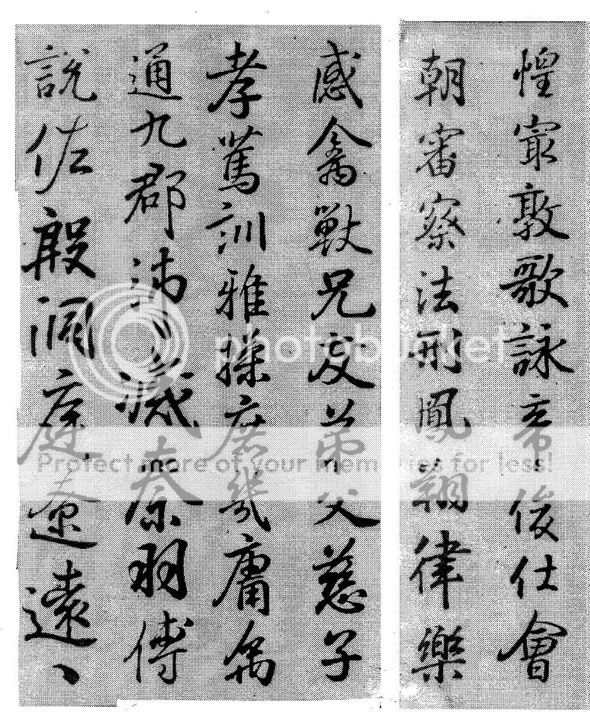 惶㝡敦歌詠帝俊仕會
朝審察法刑鳳翔律樂
感禽獸兄友弟父慈子
孝篤訓雅操庶幾庸
通九郡沛滅秦羽傅
說佐殷洞庭遼遠
photobucket
Protect more of your memories for less!